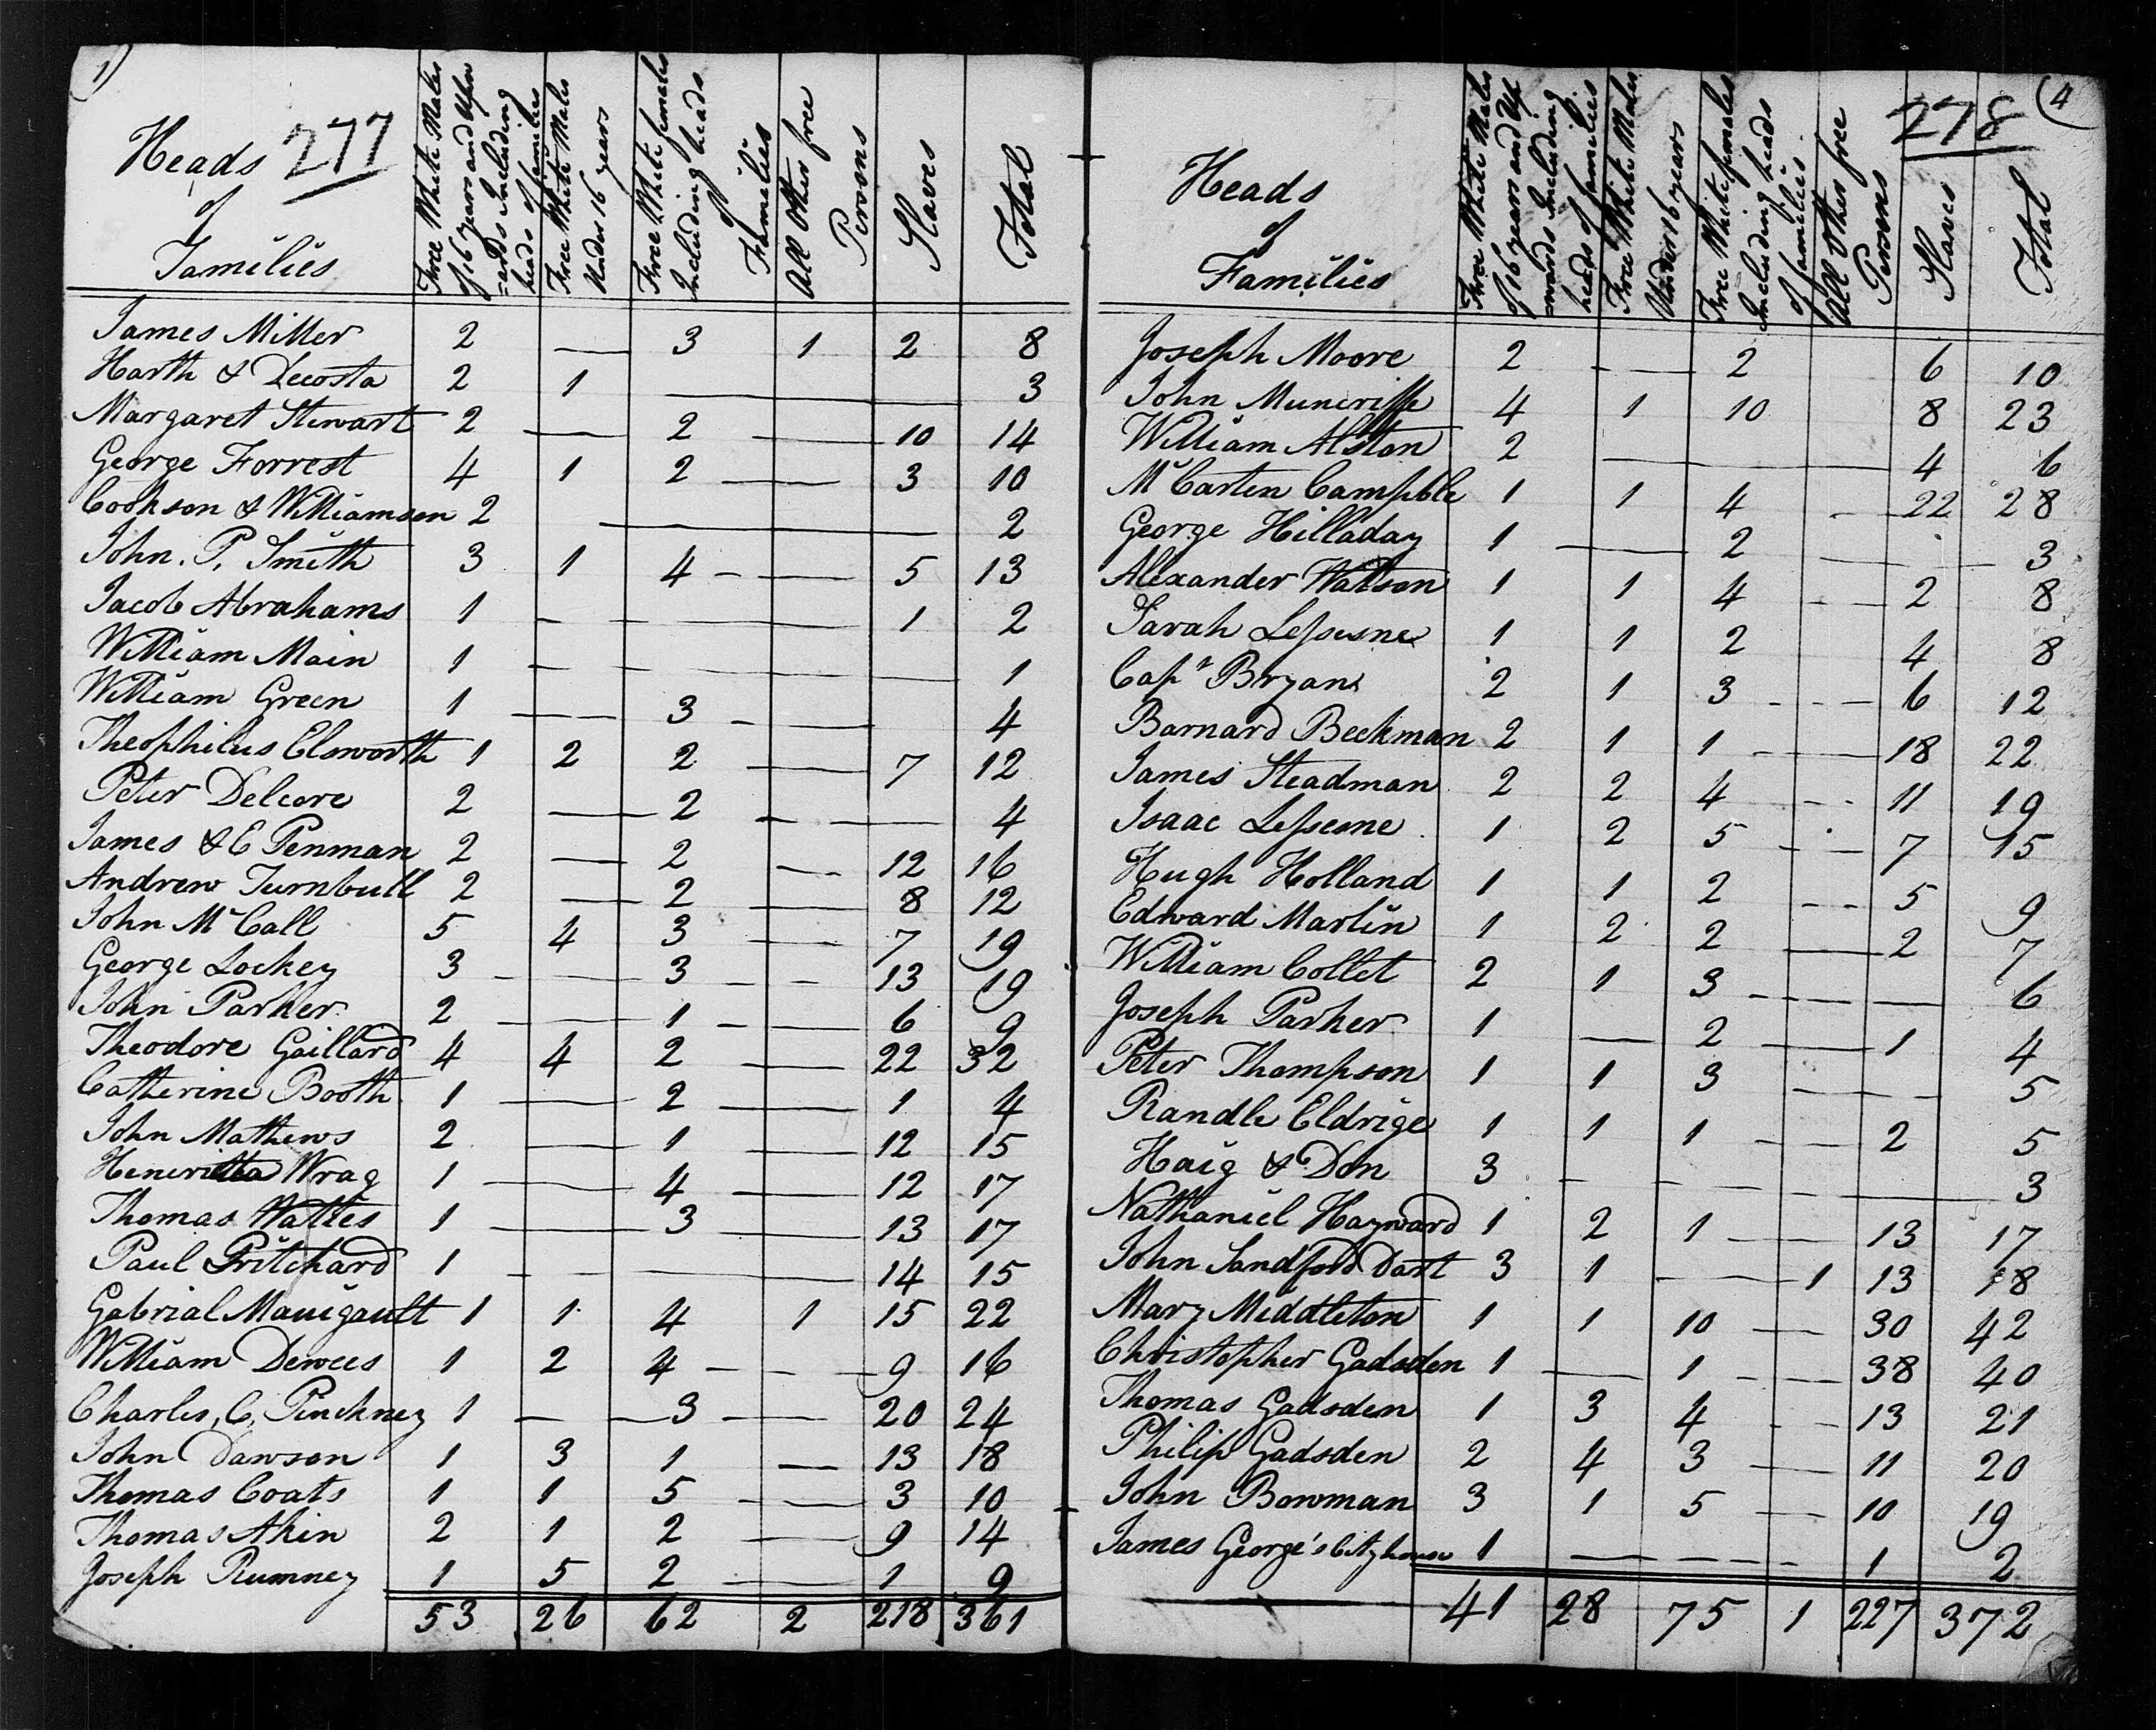 1)
Heads 277
of
Families
Free White Males
of 16 years and Upw
=ards Including
heads of families
Free White Males
Under 16 years
Free White females
Including heads
of
Families
All Other free
Persons
Slaves
Total
James Miller 2 — 3 1 2 8
Harth & Decosta 2 1 — 3
Margaret Stewart 2 — 2 — 10 14
George Forrest 4 1 2 — 3 10
Cookson & Williamson 2 — 2
John. P. Smith 3 1 4 - — 5 13
Jacob Abrahams 1 — 1 2
William Main 1 — 1
William Green 1 — 3 - — 4
Theophilus Elsworth 1 2 2 — 7 12
Peter Delcore 2 — 2 — 4
James & E Penman 2 — 2 — 12 16
Andrew Turnbull 2 — 2 — 8 12
John McCall 5 4 3 — 7 19
George Lockey 3 - — 3 - - 13 19
John Parker 2 — 1 - — 6 9
Theodore Gaillard 4 4 2 — 22 32
Catherine Booth 1 — 2 — 1 4
John Mathews 2 — 1 — 12 15
Henerietta Wrag 1 — 4 — 12 17
Thomas Wattes 1 — 3 — 13 17
Paul Pritchard 1 — 14 15
Gabrial Manigault 1 1 4 1 15 22
William Dewees 1 2 4 - — 9 16
Charles, C, Pinckney 1 — 3 — 20 24
John Dawson 1 3 1 — 13 18
Thomas Coats 1 1 5 - — 3 10
Thomas Akin 2 1 2 — 9 14
Joseph Rumney 1 5 2 — 1 9
53 26 62 2 218 361
278 (4
Heads
of
Families
Free White Males
of 16 years and Up
=wards Including
heads of families
Free White Males
Under 16 years
Free White females
Including heads
of families
All Other free
Persons
Slaves
Total
Joseph Moore 2 - — 2 6 10
John Muncriffe 4 1 10 8 23
William Alston 2 — 4 6
McCarten Campble 1 1 4 - 22 28
George Hilladay 1 — 2 — 3
Alexander Watson 1 1 4 - — 2 8
Sarah Lessesne 1 1 2 4 8
Capt Bryans 2 1 3 - - - 6 12
Barnard Beekman 2 1 1 — 18 22
James Steadman 2 2 4 - - 11 19
Isaac Lessesne 1 2 5 - - 7 15
Hugh Holland 1 1 2 - - 5 9
Edward Martin 1 2 2 — 2 7
William Collet 2 1 3 - - - — 6
Joseph Parker 1 — 2 — 1 4
Peter Thompson 1 1 3 — - - - 5
Randle Eldrige 1 1 1 - — 2 5
Haig & Don 3 - - - - — 3
Nathaniel Hayward 1 2 1 — 13 17
John Sandford Dart 3 1 — 1 13 18
Mary Middleton 1 1 10 — 30 42
Christopher Gadsden 1 — 1 - - — 38 40
Thomas Gadsden 1 3 4 - - 13 21
Philip Gadsden 2 4 3 — 11 20
John Bowman 3 1 5 — 10 19
James George's 1 — - - - 1 2
41 28 75 1 227 372